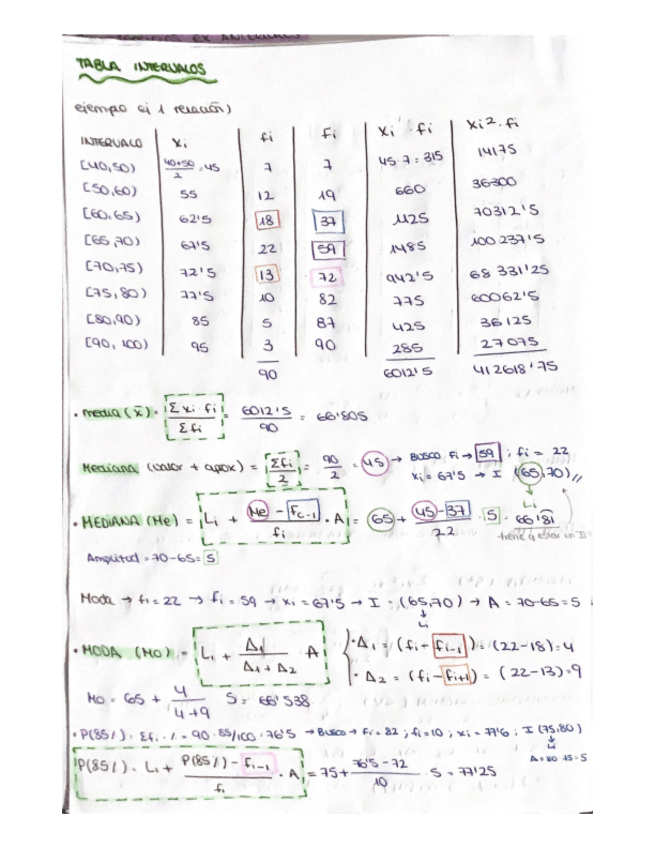 TABLA INTERVALOS
ejemplo ej 1 relación)
INTERVALO xi fi Fi xi · fi xi² · fi
[40,50) 40+50/2 = 45 7 7 45·7 = 315 14175
[50,60) 55 12 19 660 36300
[60,65) 62'5 18 37 1125 70312'5
[65,70) 67'5 22 59 1485 100 237'5
[70,75) 72'5 13 72 942'5 68 331'25
[75,80) 77'5 10 82 775 60062'5
[80,90) 85 5 87 425 36125
[90,100) 95 3 90 285 27075
90 6012'5 412618'75
· media (x̄) = Σxi·fi/Σfi = 6012'5/90 = 66'805
Mediana (valor + aprox) = Σfi/2 = 90/2 = 45 → BUSCO Fi → 59 ; fi = 22
xi = 67'5 → I (65,70)
Li
· MEDIANA (Me) = Li + Me - Fi-1/fi · A = 65 + 45-37/22 · 5 = 66'81
-tiene q estar en I
Amplitud = 70-65 = 5
Moda → fi = 22 → Fi = 59 → xi = 67'5 → I = (65,70) → A = 70-65 = 5
Li
· MODA (Mo) = Li + Δ1/Δ1+Δ2 · A · Δ1 = (fi - fi-1) = (22-18) = 4
· Δ2 = (fi - fi+1) = (22-13) = 9
Mo = 65 + 4/4+9 5 = 66'538
· P(85%) = Σfi · % = 90 · 85/100 = 76'5 → Busco → Fi = 82 ; fi = 10 ; xi = 77'6 ; I (75,80)
Li
A = 80-75 = 5
P(85%) = Li + P(85%) - Fi-1/fi · A = 75 + 76'5-72/10 · 5 = 77'25